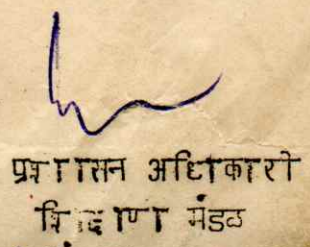 प्रशासन अधिकारी
शिक्षण मंडळ